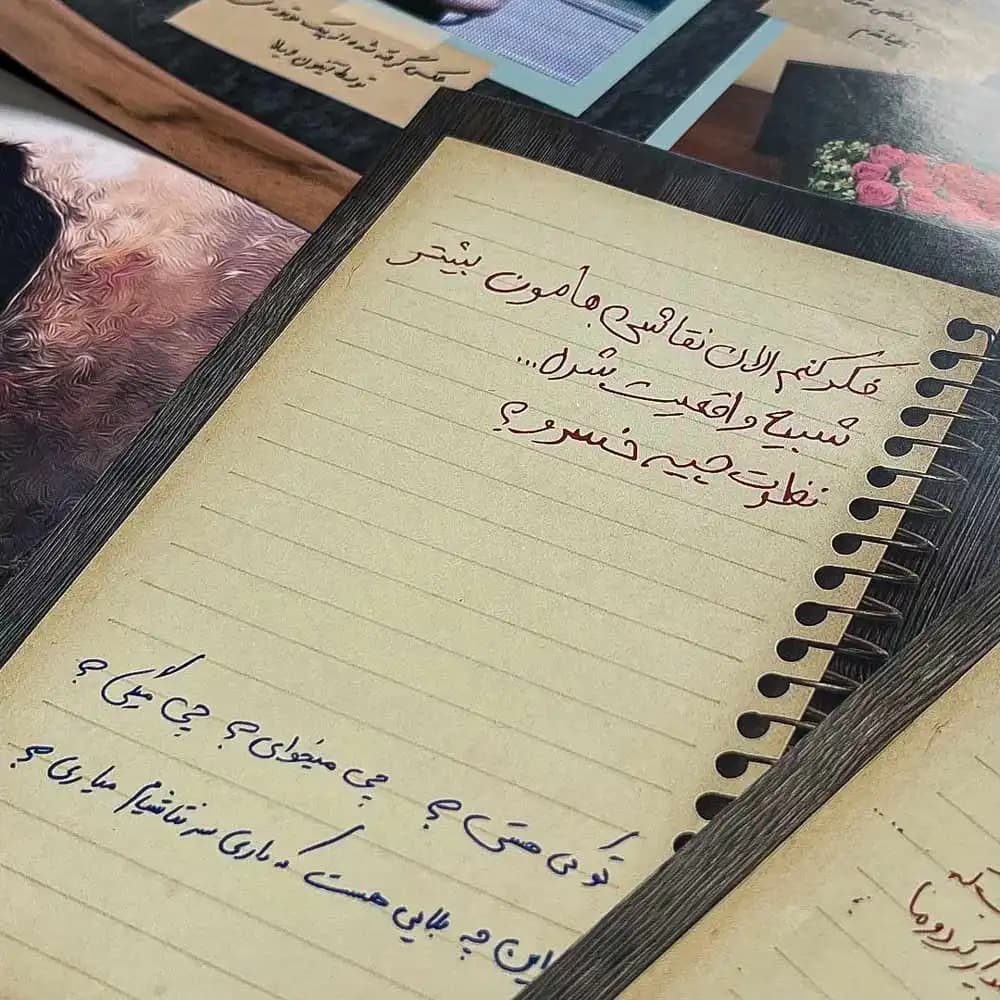 عکس گرفته شده از پیک موتوری
توسط آیفون ویلا
فکر کنم الان نقاشی هامون بیشتر
شبیه واقعیت شدن...
نظرت چیه خسرو؟
تو کی هستی؟ چی میخوای؟ چی میگی؟
این چه بلایی هست که داری سر نقاشیام میاری؟